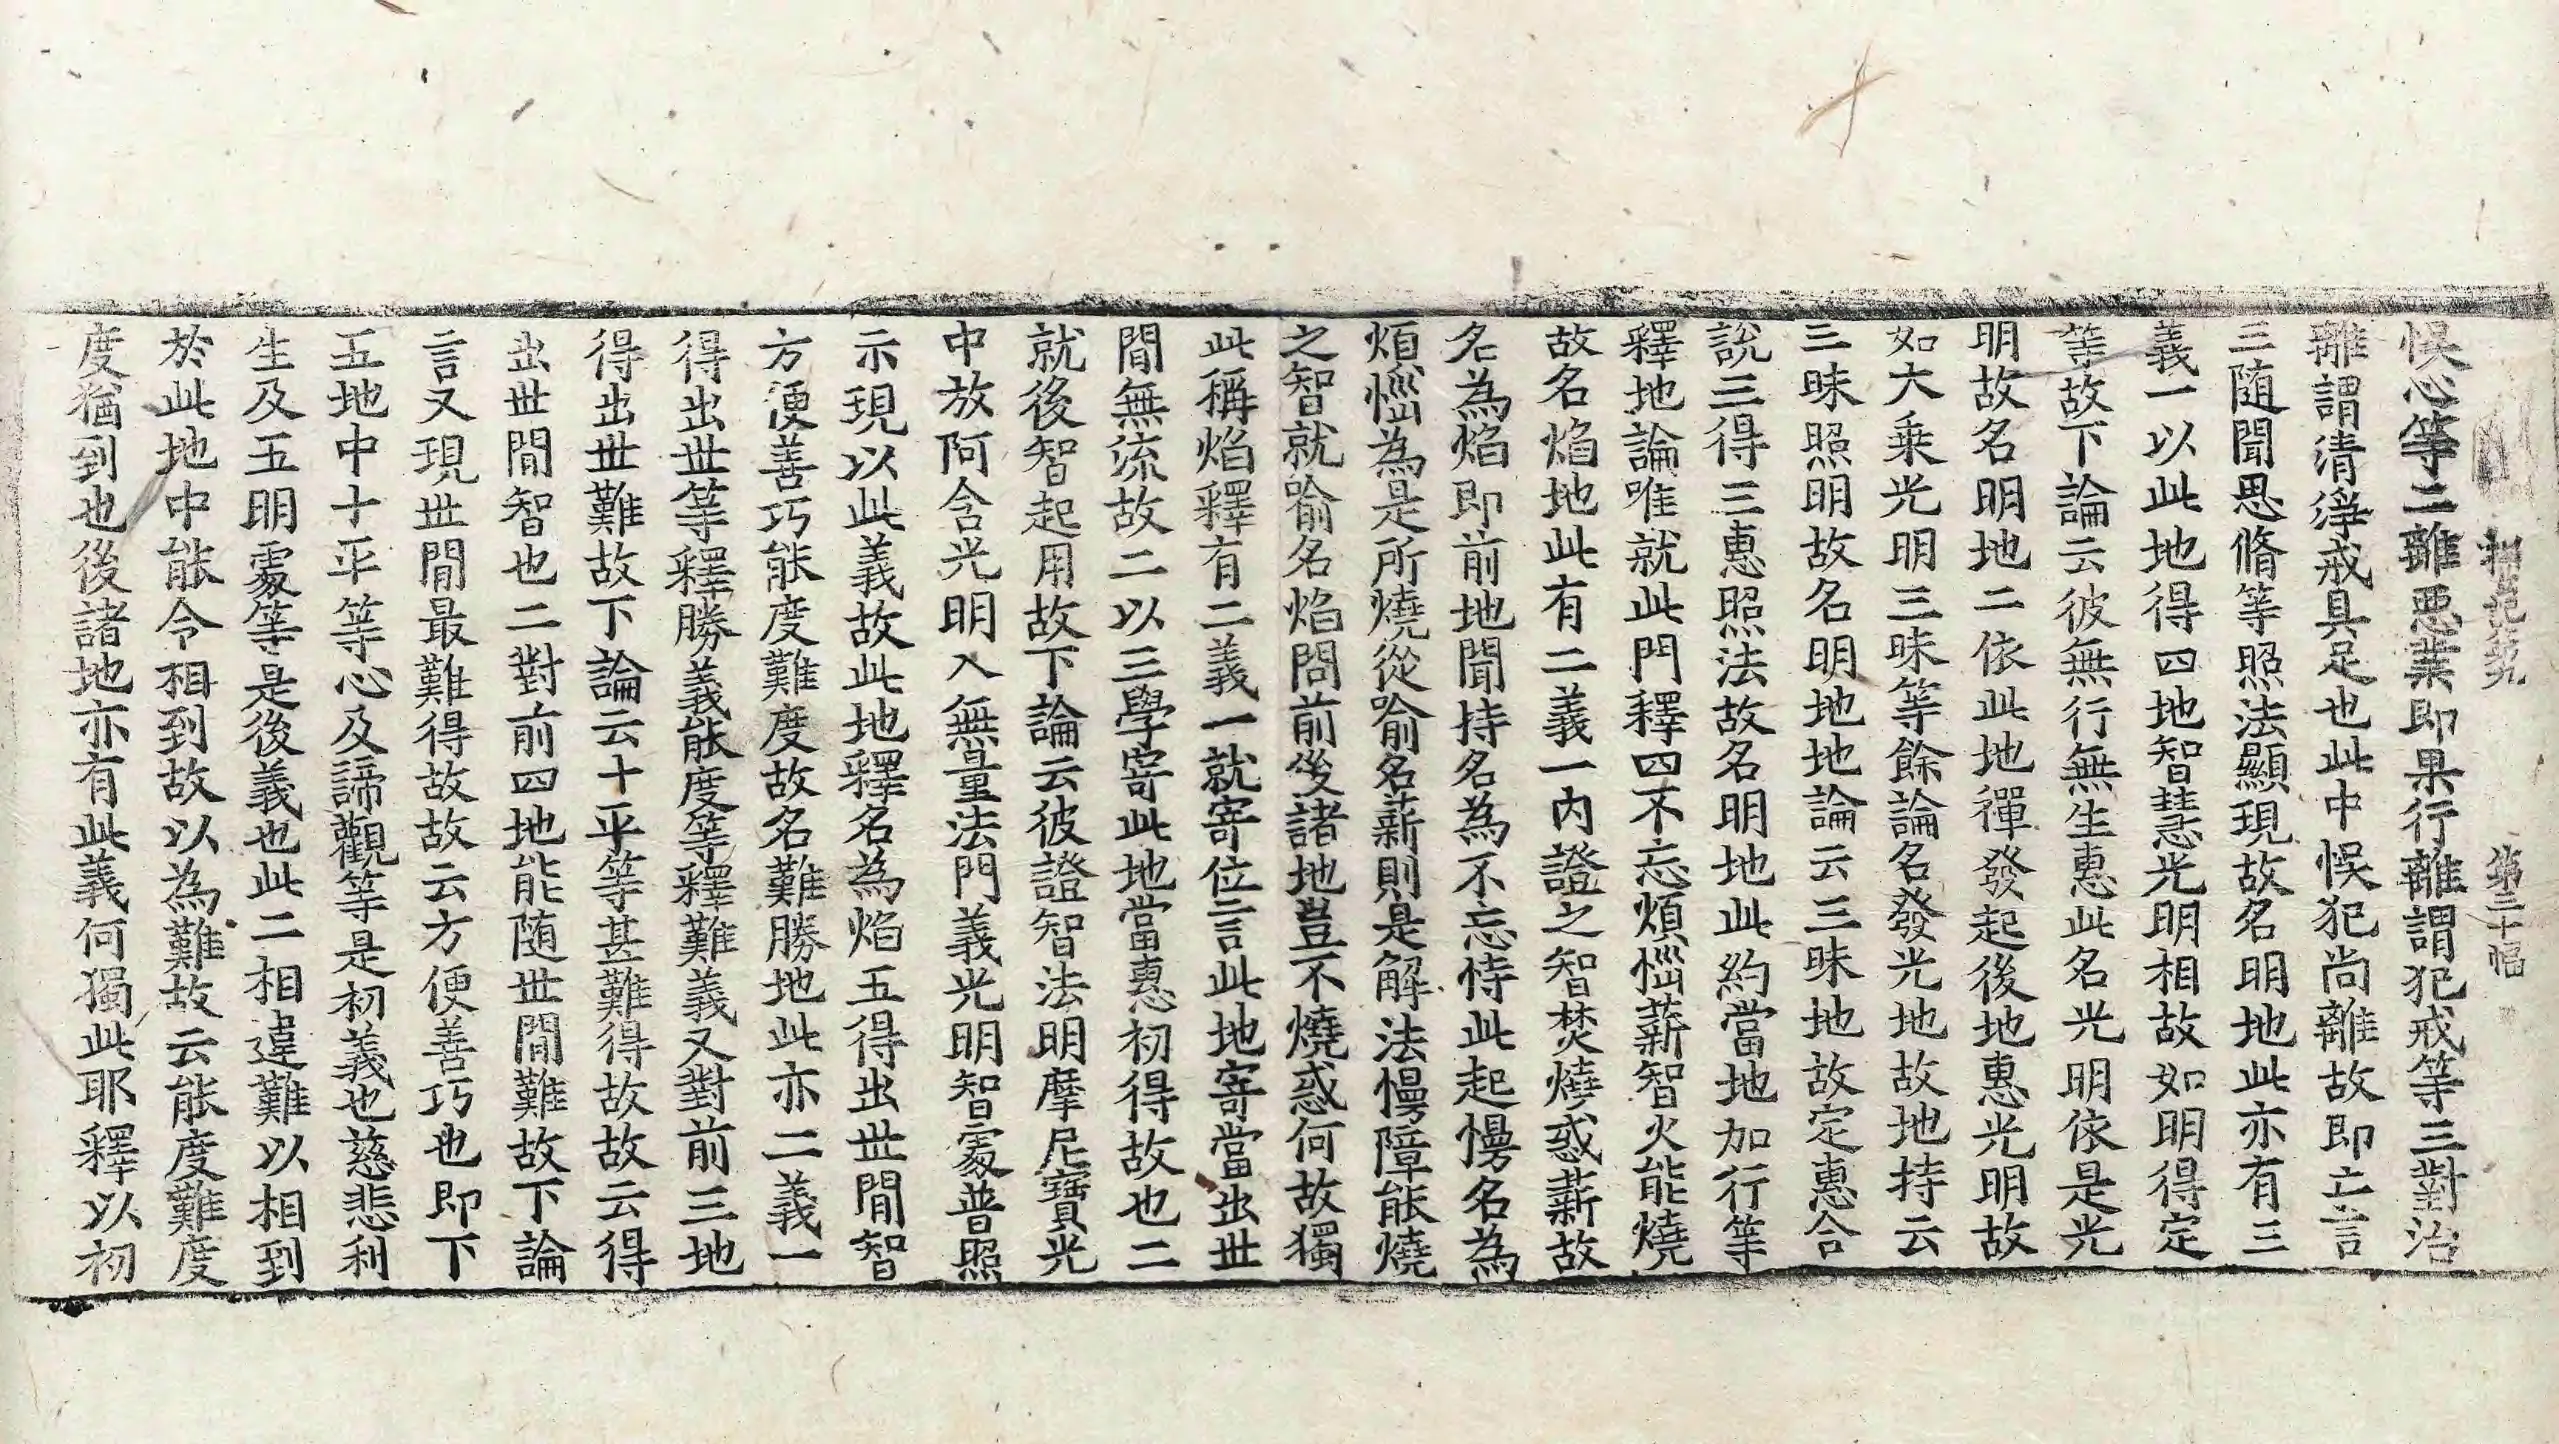 探玄記第九 第三十幅
悞心等二離惡業即果行離謂犯戒等三對治
離謂清淨戒具足也此中悞犯尚離故即亡言
三随聞思脩等照法顯現故名明地此亦有三
義一以此地得四地智慧光明相故如明得定
等故下論云彼無行無生惠此名光明依是光
明故名明地二依此地禪發起後地惠光明故
如大乘光明三昧等餘論名發光地故地持云
三昧照明故名明地地論云三昧地故定惠合
說三得三惠照法故名明地此約當地加行等
釋地論唯就此門釋四不忘煩惱薪智火能燒
故名焰地此有二義一內證之智焚燒惑薪故
名為焰即前地聞持名為不忘恃此起慢名為
煩惱為是所燒從喻名薪則是解法慢障能燒
之智就喻名焰問前後諸地豈不燒惑何故獨
此稱焰釋有二義一就寄位言此地寄當出世
間無流故二以三學寄此地當惠初得故也二
就後智起用故下論云彼證智法明摩尼寶光
中放阿含光明入無量法門義光明智處普照
示現以此義故此地釋名為焰五得出世間智
方便善巧能度難度故名難勝地此亦二義一
得出世等釋勝義能度等釋難義又對前三地
得出世難故下論云十平等甚難得故故云得
出世間智也二對前四地能随世間難故下論
言又現世間最難得故故云方便善巧也即下
五地中十平等心及諦觀等是初義也慈悲利
生及五明處等是後義也此二相違難以相到
於此地中能令相到故以為難故云能度難度
度猶到也後諸地亦有此義何獨此耶釋以初